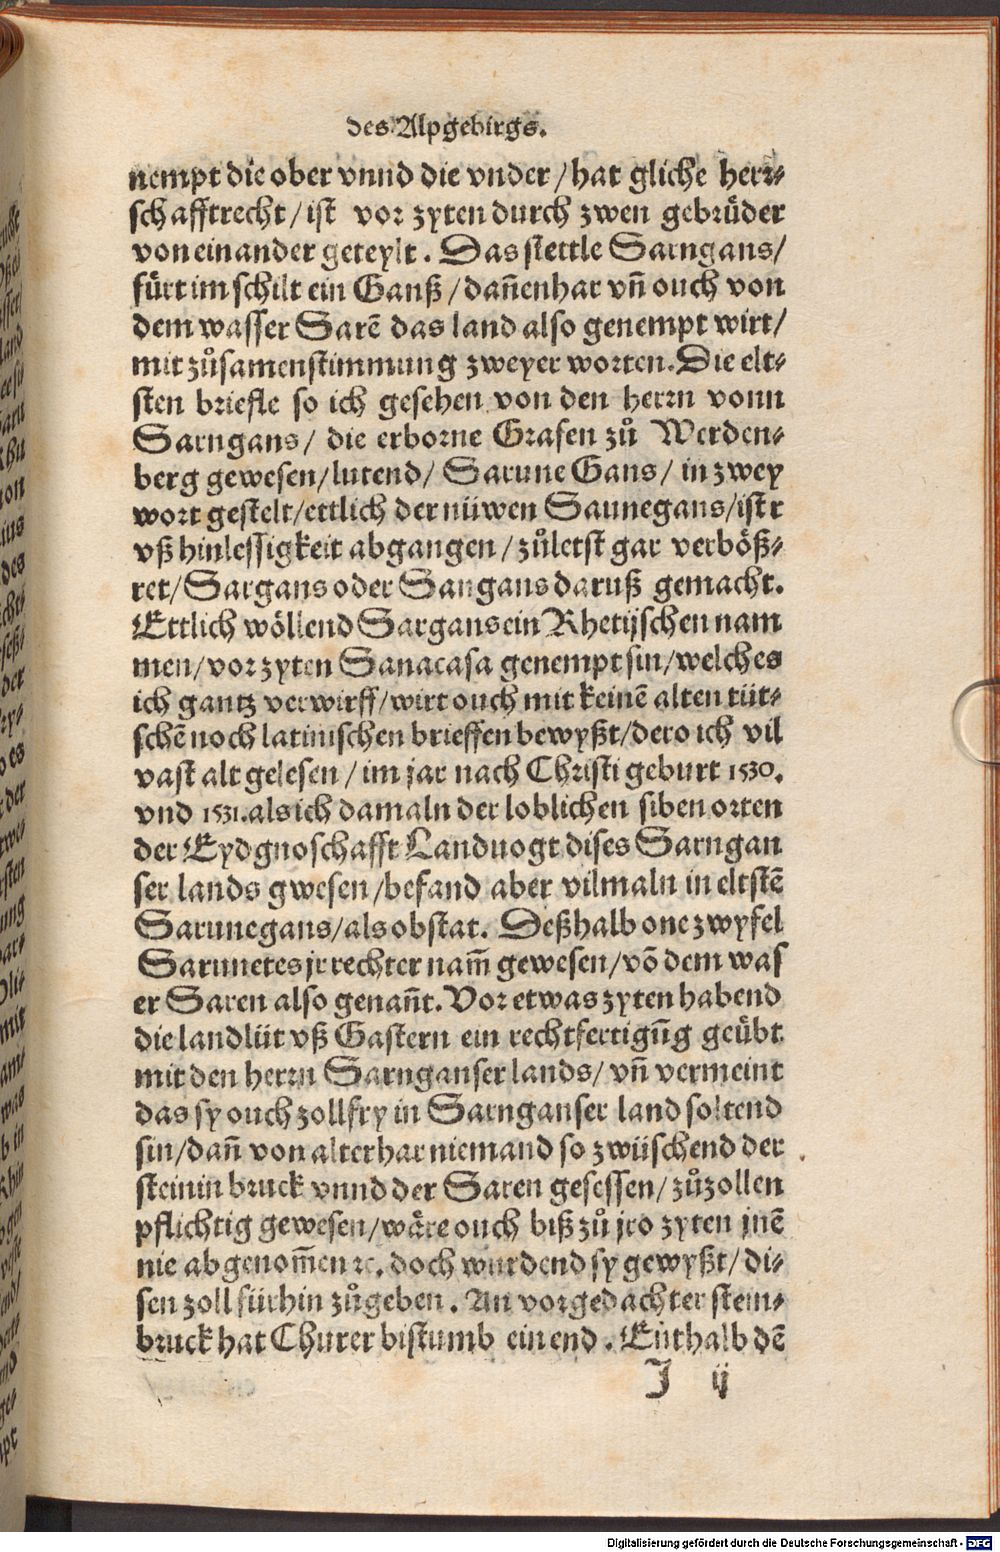 des Alpgebirgs.
nempt die ober vnnd die vnder / hat gliche herr⸗
schafftrecht / ist vor zyten durch zwen gebrüder
von einander geteylt. Das stettle Sarngans /
fürt im schilt ein Ganß / dañenhar vñ ouch von
dem wasser Sarē das land also genempt wirt /
mit zůsamenstimmung zweyer worten. Die elt⸗
sten briefle so ich gesehen von den herrn vonn
Sarngans / die erborne Grafen zů Werden⸗
berg gewesen / lutend / Sarune Gans / in zwey
wort gestelt / ettlich der nüwen Saunegans / ist r
vß hinlessigkeit abgangen / zůletst gar verböß⸗
ret / Sargans oder Sangans daruß gemacht.
Ettlich wöllend Sargans ein Rhetijschen nam
men / vor zyten Sanacasa genempt sin / welches
ich gantz verwirff / wirt ouch mit keinē alten tüt⸗
schē noch latinischen brieffen bewyßt / dero ich vil
vast alt gelesen / im jar nach Christi geburt 1530.
vnd 1531. als ich damaln der loblichen siben orten
der Eydgnoschafft Landuogt dises Sarngan
ser lands gwesen / befand aber vilmaln in eltstē
Sarunegans / als obstat. Deßhalb one zwyfel
Sarunetes jr rechter nam̄ gewesen / vō dem waſ
er Saren also genañt. Vor etwas zyten habend
die landlüt vß Gastern ein rechtfertigūg geübt
mit den herrn Sarnganser lands / vñ vermeint
das sy ouch zollfry in Sarnganser land soltend
sin / dañ von alterhar niemand so zwüschend der
steinin bruck vnnd der Saren gesessen / zůzollen
pflichtig gewesen / wäre ouch biß zů jro zyten jnē
nie abgenom̄en ꝛc. doch wurdend sy gewyßt / di⸗
sen zoll fürhin zůgeben. An vorgedachter stein⸗
bruck hat Churer bistumb ein end. Enthalb dē
J ij
Digitalisierung gefördert durch die Deutsche Forschungsgemeinschaft - DFG